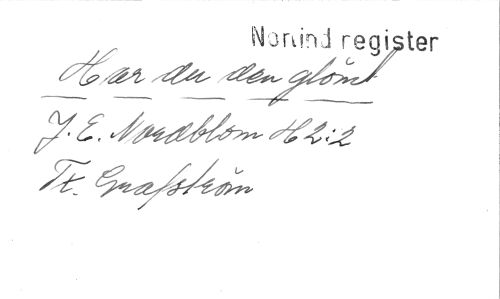 Norlind register
Har du den glömt
J. E. Nordblom H 2:2
Tx. Grafström